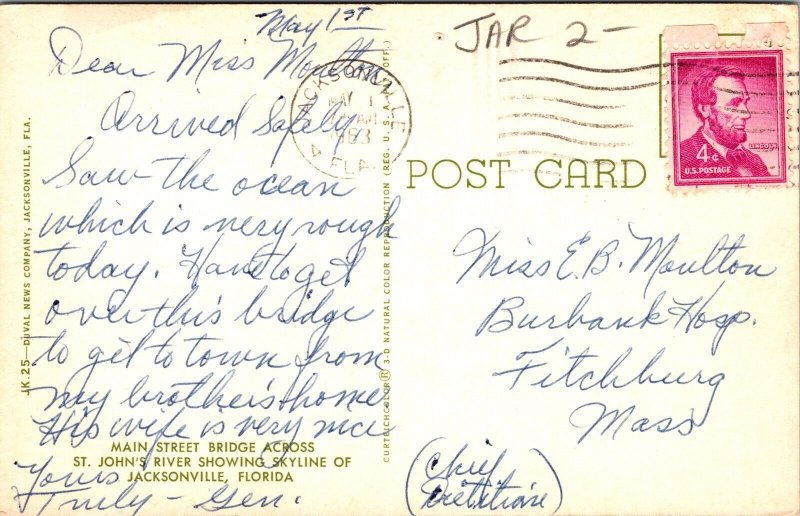 May 1st
Dear Miss Moulton
Arrived Safely
Saw the ocean
which is very rough
today. Have to get
over this bridge
to get to town from
my brother's home
His wife is very nice
Yours
Truly - Gen.
MAIN STREET BRIDGE ACROSS
ST. JOHN'S RIVER SHOWING SKYLINE OF
JACKSONVILLE, FLORIDA
JK.25—DUVAL NEWS COMPANY, JACKSONVILLE, FLA.
CURTEICHCOLOR® 3-D NATURAL COLOR REPRODUCTION (REG. U.S.A. PAT. OFF.)
JAR 2-
JACKSONVILLE
MAY 1
AM
FLA
POST CARD
4¢
LINCOLN
U.S. POSTAGE
Miss E. B. Moulton
Burbank Hosp.
Fitchburg
Mass
(Chief
Dietitian)